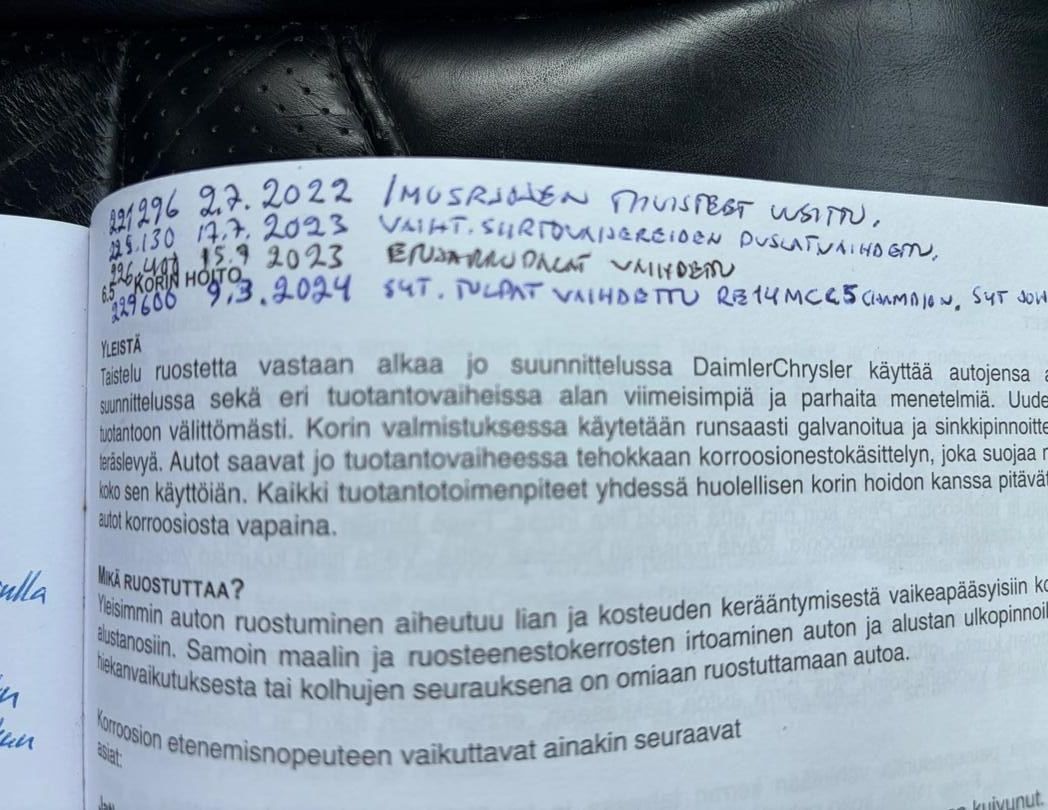 221296 2.7.2022 / IMUSRJOJEN TIIVISTEET USITTU.
225.130 17.7.2023 VAIHT.SIIRTOVAIJEREIDEN PUSLAT VAIHDETTU.
15.9 2023 ETUJARRUPALAT VAIHDETTU
6.5 KORIN HOITO
229600 9.3.2024 SYT. TULPAT VAIHDETTU RE14MCC5 CHAMPION. SYT JOH
YLEISTÄ
Taistelu ruostetta vastaan alkaa jo suunnittelussa DaimlerChrysler käyttää autojensa
suunnittelussa sekä eri tuotantovaiheissa alan viimeisimpiä ja parhaita menetelmiä. Uude
tuotantoon välittömästi. Korin valmistuksessa käytetään runsaasti galvanoitua ja sinkkipinnoitte
teräslevyä. Autot saavat jo tuotantovaiheessa tehokkaan korroosionestokäsittelyn, joka suojaa
koko sen käyttöiän. Kaikki tuotantotoimenpiteet yhdessä huolellisen korin hoidon kanssa pitävät
autot korroosiosta vapaina.
MIKÄ RUOSTUTTAA?
Yleisimmin auton ruostuminen aiheutuu lian ja kosteuden kerääntymisestä vaikeapääsyisiin ko
alustanosiin. Samoin maalin ja ruosteenestokerrosten irtoaminen auton ja alustan ulkopinnoil
hiekanvaikutuksesta tai kolhujen seurauksena on omiaan ruostuttamaan autoa.
Korroosion etenemisnopeuteen vaikuttavat ainakin seuraavat
asiat:
kuivunut.